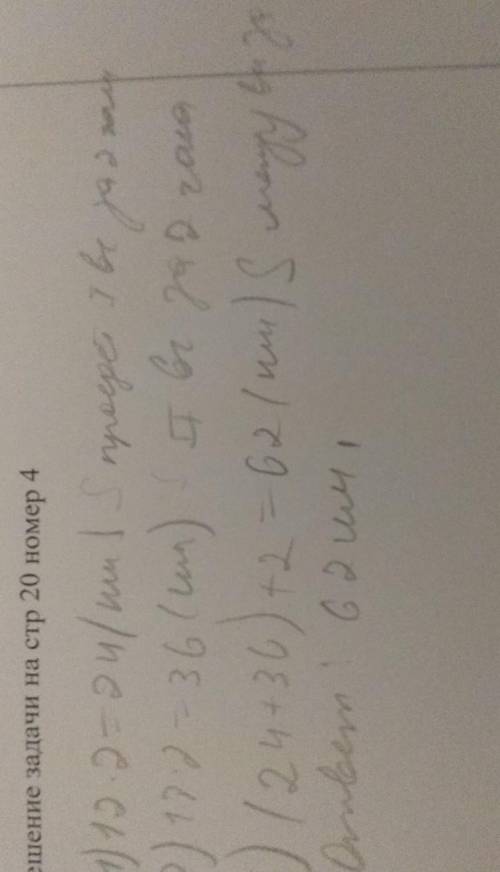 ешение задачи на стр 20 номер 4
1) 12·2=24(км) S проедет I вг за 2 часа
2) 17·2=36(км) S II вг за 2 часа
) (24+36)+2=62(км) S между
Ответ: 62 км.